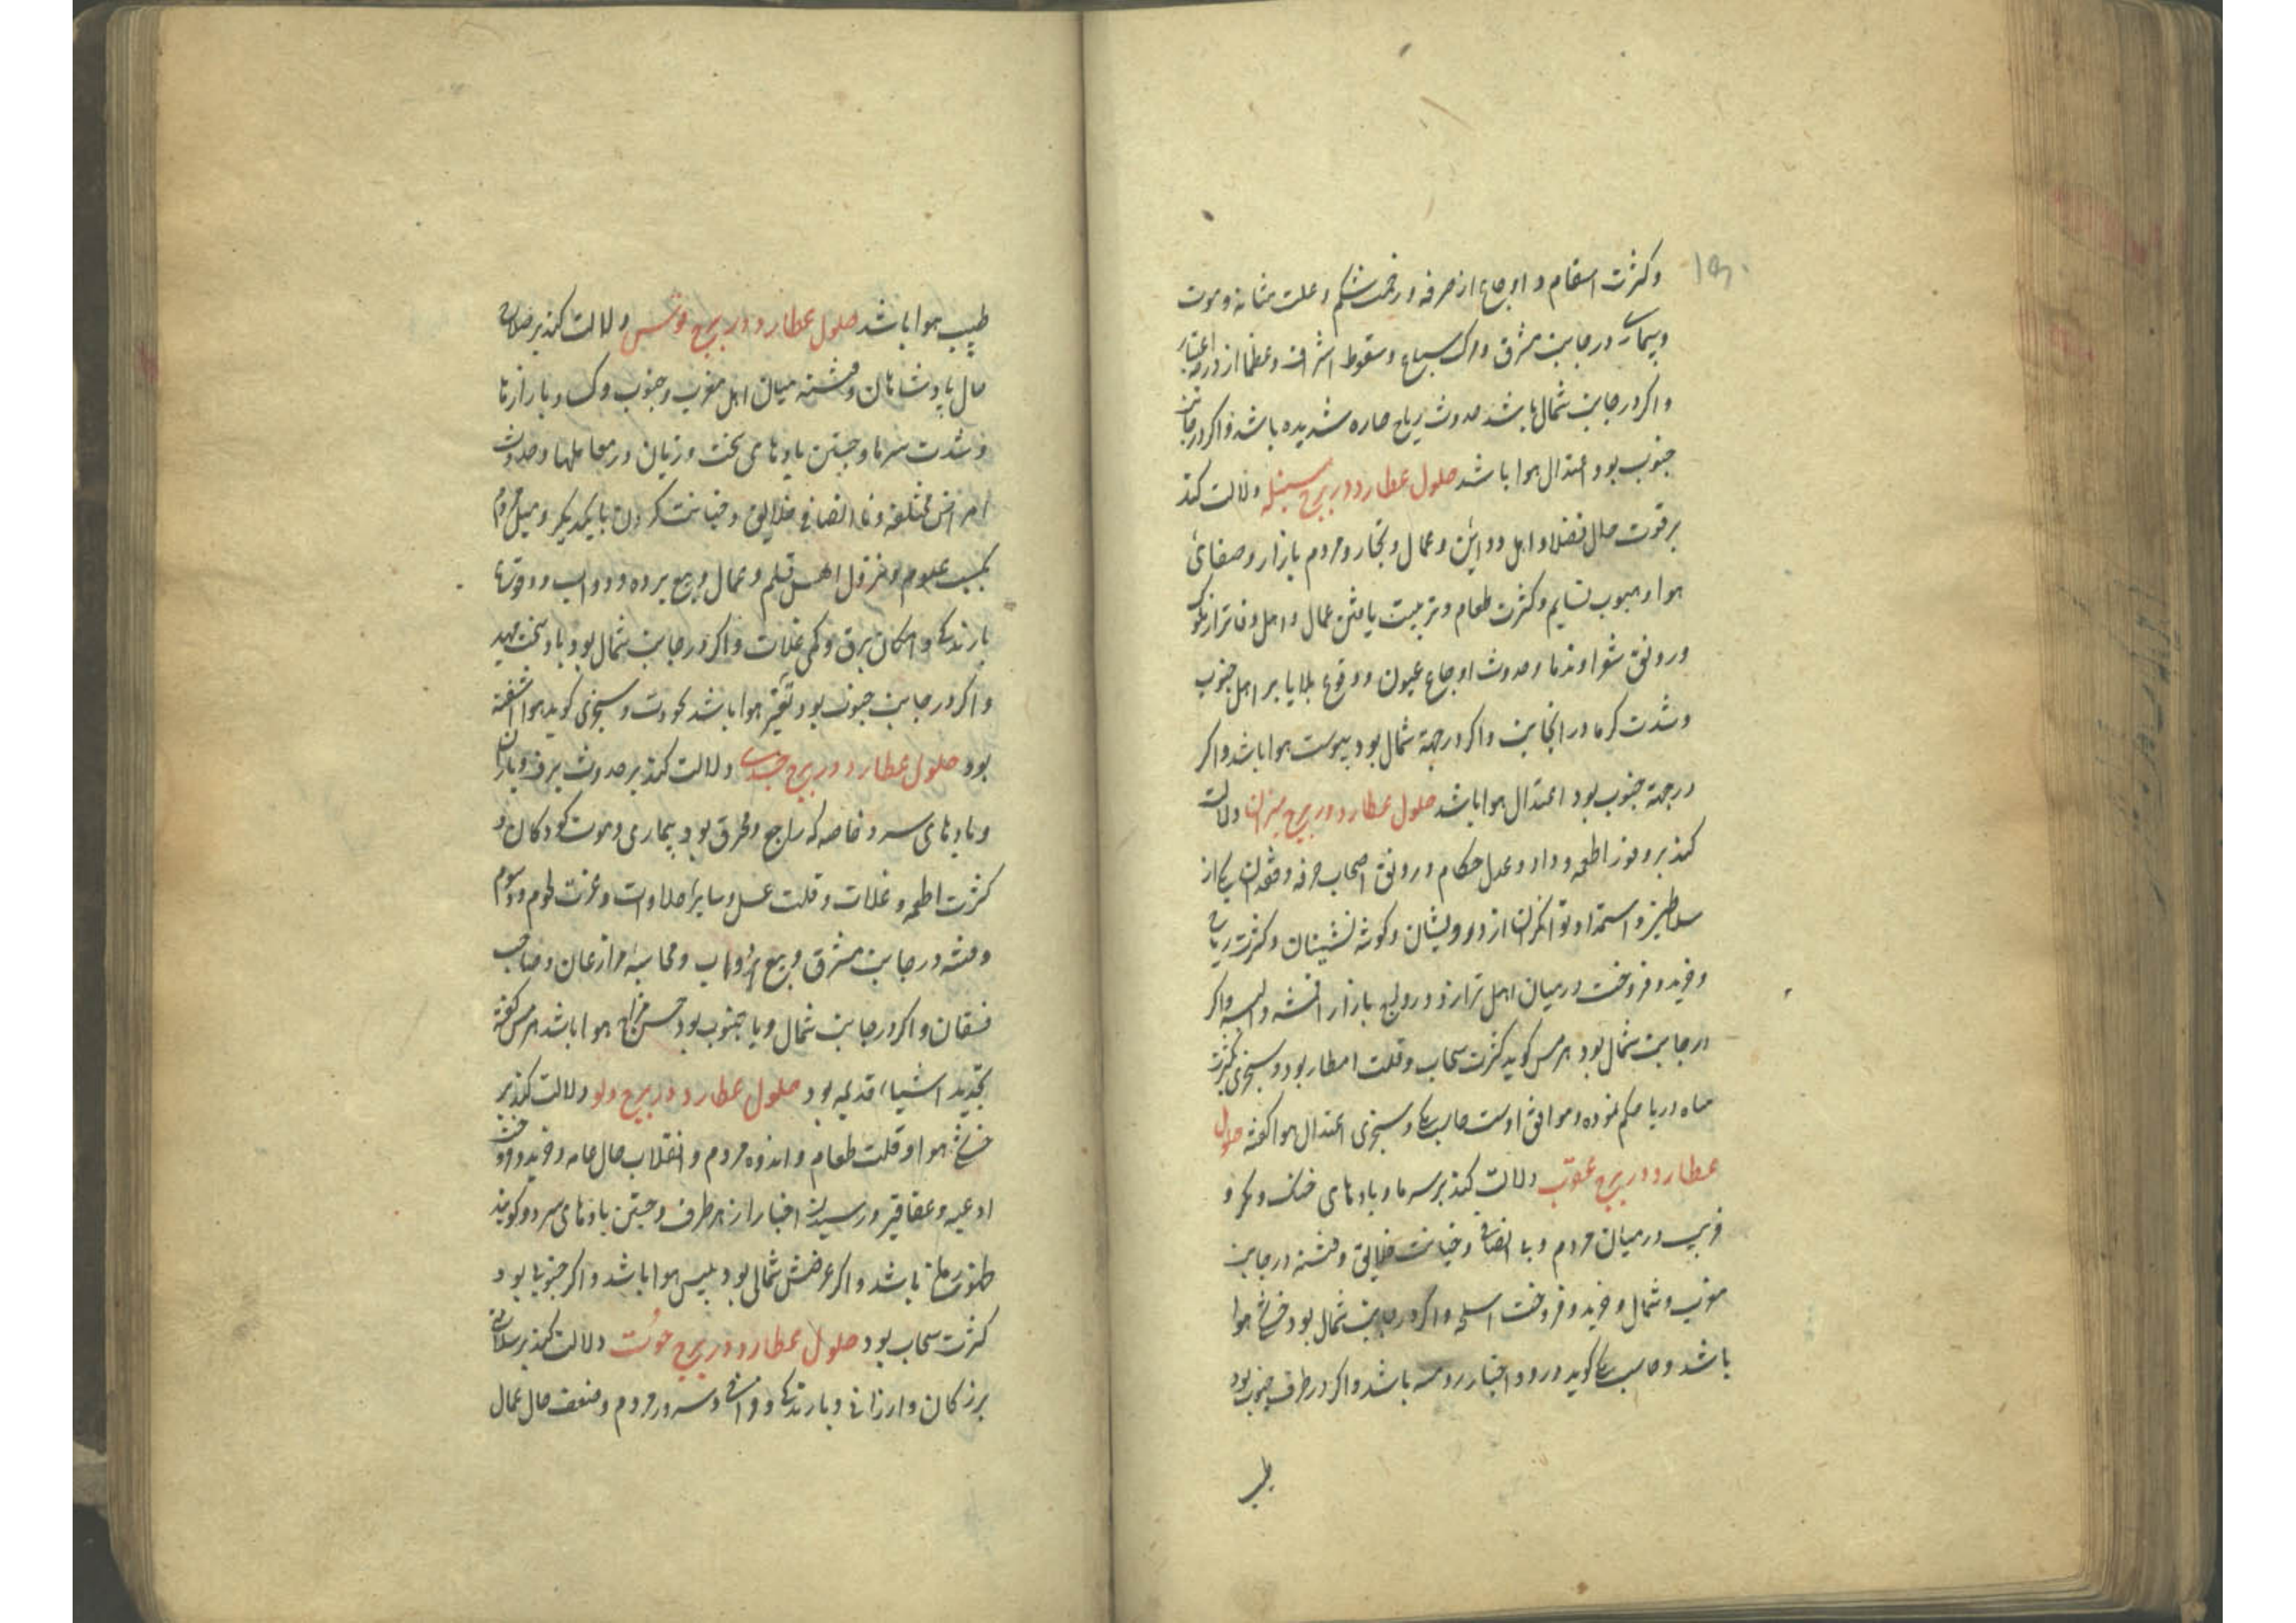 ۱۵۰
و کثرت اسقام و اوجاع از حرفه و زحمت شکم و علت مثانه و موت
و بیماری در جانب مشرق و مرک سباع و سقوط اشراف و عظما از درجه اعتبار
و اکر در جانب شمال باشد حدوث ریاح حاره شدیده باشد و اکر در جانب
جنوب بود اعتدال هوا باشد حلول عطارد در برج سنبله دلالت کند
بر قوت حال فضلا و اهل دواوین و عمال و تجار و مردم بازار و صفائ
هوا و هبوب نسایم و کثرت طعام و تربیت یافتن عمال و اهل دفاتر از ملوک
و رونق شعرا و ندما و حدوث اوجاع عیون و وقوع بلایا بر اهل جنوب
و شدت کرما در انجانب و اکر در جهة شمال بود یبوست هوا باشد و اکر
در جهة جنوب بود اعتدال هوا باشد حلول عطارد در برج میزان دلالت
کند بر وفور اطعمه و داد و عدل حکام و رونق اصحاب حرفه و فقدان یکی از
سلاطین و استمداد توانکران از درویشان و کوشه نشینان و کثرت ریاح
و خرید و فروخت در میان اهل ترازو و رواج بازار اقمشه و البسه و اکر
در جانب شمال بود هرمس کوید کثرت سحاب و قلت امطار بود و سجزی بکثرت
میاه دریا حکم نموده و موافق اوست حاسب و سجزی اعتدال هوا کفته حلول
عطارد در برج عقرب دلالت کند بر سرما و بادهای خنک و مکر و
فریب در میان مردم و بی انصافی و خیانت خلایق و فتنه در جانب
مغرب و شمال و خرید و فروخت اسلحه و اکر در جانب شمال بود خوشی هوا
باشد و حاسب کوید ورود اخبار باشد و اکر در طرف جنوب بود
طیب
طیب هوا باشد حلول عطارد در برج قوس دلالت کند بر صلاح
حال پادشاهان و فتنه میان اهل مغرب و جنوب و بازارها
و شدت سرما و جستن بادهای سخت و زیان در معاملها و حدوث
امراض مختلفه و نا انصافی خلایق و خیانت کردن با یکدیکر و میل مردم
بکسب علوم و عزل اهل قلم و عمال و بیع برده و دواب و
بارندکی و امکان برق و کمی غلات و اکر در جانب شمال بود باد سخت جهد
و اکر در جانب جنوب بود تغیر هوا باشد و سجزی کوید هوا اشفته
بود حلول عطارد در برج جدی دلالت کند بر حدوث برف و باران
و بادهای سرد خاصه که راجع و محترق بود و بیماری و موت کودکان و
کثرت اطعمه و غلات و قلت عسل و سایر حلاوات و عزت لحوم و
و فتنه در جانب مشرق و بیع و محاسبه مزارعان و صاحب
و اکر در جانب شمال و یا جنوب بود حسن مزاج هوا باشد هرمس کفته
تجدید اشیاء قدیمه بود حلول عطارد در برج دلو دلالت کند بر
خوشی هوا و قلت طعام و اندوه مردم و انقلاب حال عامه و خرید و فروخت
ادعیه و عقاقیر و رسیدن اخبار از هر طرف و جستن بادهای سرد و کویند
باشد و اکر عرضش شمالی بود یبس هوا باشد و اکر جنوبی بود
کثرت سحاب بود حلول عطارد در برج حوت دلالت کند بر سلامتی
بزرکان و ارزانی و بارندکی و فراخی و سرور مردم و ضعف حال عمال